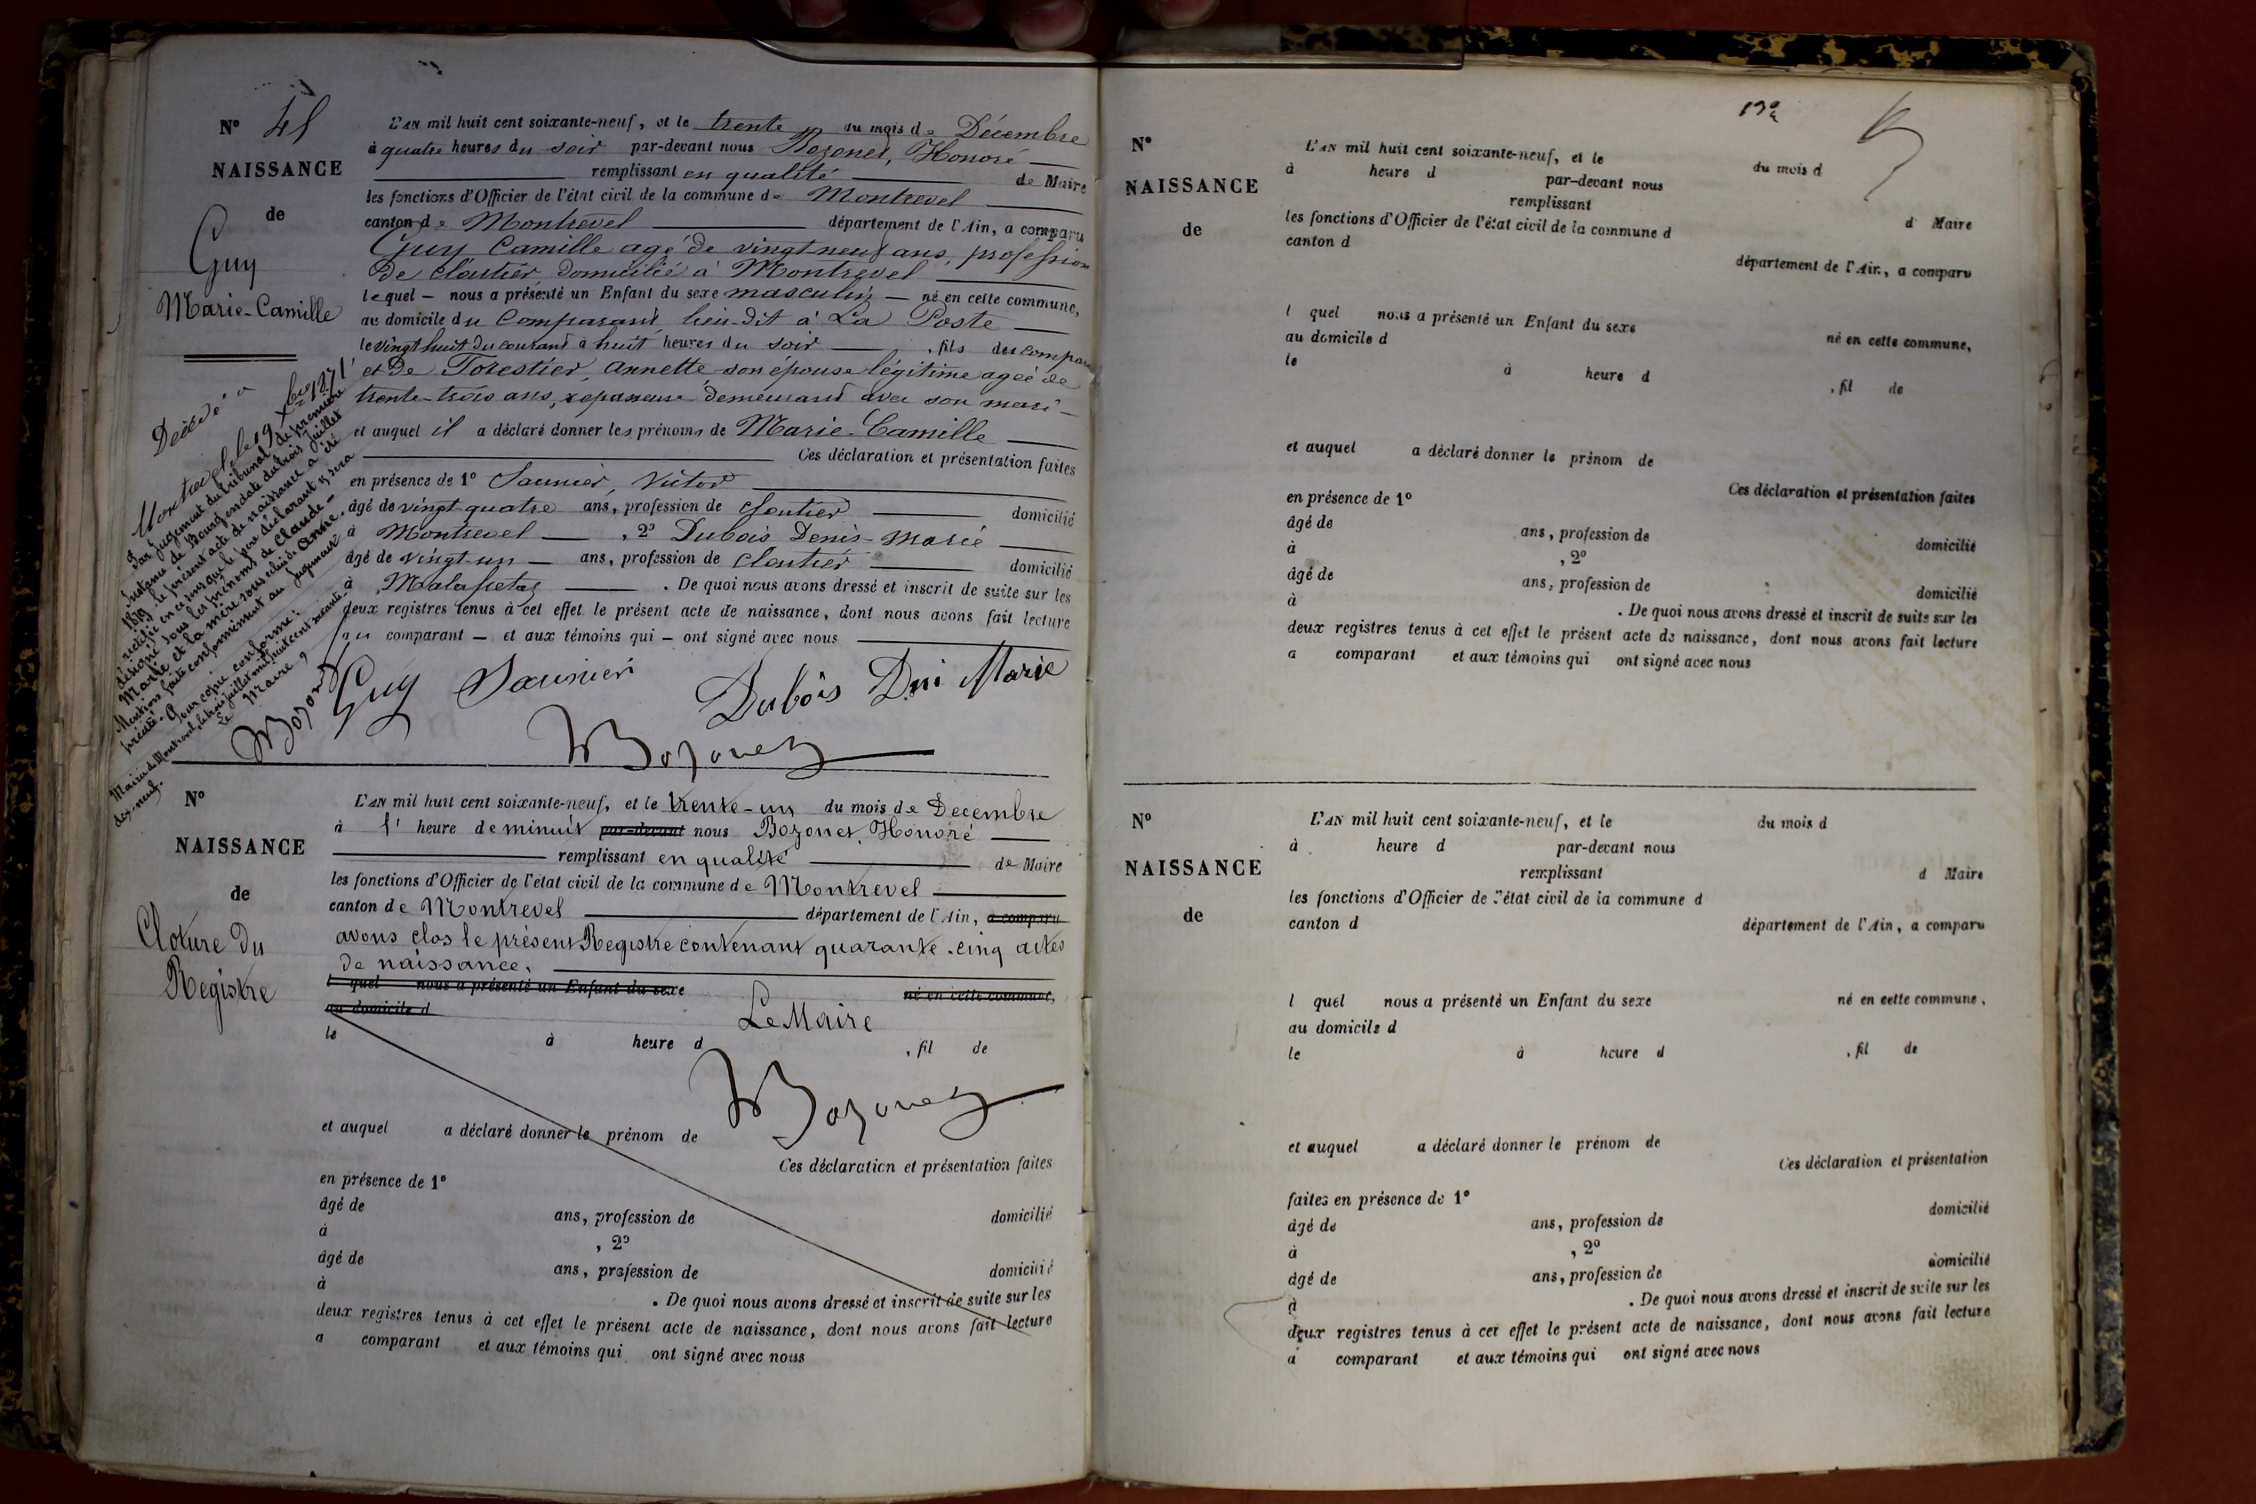 N° 45
NAISSANCE
de
Guy
Marie-Camille
L'AN mil huit cent soixante-neuf, et le trente du mois de Décembre
à quatre heures du soir par-devant nous Bozonet, Honoré
remplissant en qualité de Maire
les fonctions d'Officier de l'état civil de la commune de Montrevel
canton de Montrevel département de l'Ain, a comparu
Guy Camille agé de vingt-neuf ans, profession
de cloutier, domicilié à Montrevel
lequel — nous a présenté un Enfant du sexe masculin — né en cette commune,
au domicile du Comparant lieu-dit à La Poste
le vingt huit du courant à huit heures du soir , fils du compar
et de Forestier, Annette son épouse légitime agée de
trente-trois ans, repasseuse demeurant avec son mari —
et auquel il a déclaré donner les prénoms de Marie-Camille
Ces déclaration et présentation faites
en présence de 1° Saunier, Victor
âgé de vingt-quatre ans, profession de cloutier domicilié
à Montrevel , 2° Dubois Denis-Marie
âgé de vingt-un ans, profession de cloutier domicilié
à Malafretaz . De quoi nous avons dressé et inscrit de suite sur les
deux registres tenus à cet effet le présent acte de naissance, dont nous avons fait lecture
au comparant — et aux témoins qui — ont signé avec nous
Guy Saunier Dubois Dni Marie
Bozonet
Décédé à
Montrevel, le 19 Xbre 1871
Par jugement du tribunal de première
Instance de Bourg en date du trois Juillet
1879, le présent acte de naissance a été
rectifié en ce sens que le père déclarant y sera
désigné sous les prénoms de Claude-
Marie et la mère sous celui de Anne.
Mention faite conformément au jugement
précité.
Pour copie conforme:
Mairie de Montrevel, le trois juillet mil huit cent soixante-
dix-neuf.
Le Maire,
Bozonet
N°
NAISSANCE
de
Cloture du
Registre
L'AN mil huit cent soixante-neuf, et le trente-un du mois de Decembre
à l' heure de minuit par-devant nous Bozonet, Honoré
remplissant en qualité de Maire
les fonctions d'Officier de l'état civil de la commune de Montrevel
canton de Montrevel département de l'Ain, a comparu
avons clos le présent Registre contenant quarante-cinq actes
de naissance.
l quel nous a présenté un Enfant du sexe né en cette commune,
au domicile d
Le Maire
le à heure d , fil de
Bozonet
et auquel a déclaré donner le prénom de
Ces déclaration et présentation faites
en présence de 1°
âgé de ans, profession de domicilié
à , 2°
âgé de ans, profession de domicilié
à . De quoi nous avons dressé et inscrit de suite sur les
deux registres tenus à cet effet le présent acte de naissance, dont nous avons fait lecture
a comparant et aux témoins qui ont signé avec nous
N°
NAISSANCE
de
L'AN mil huit cent soixante-neuf, et le du mois d
à heure d par-devant nous
remplissant d Maire
les fonctions d'Officier de l'état civil de la commune d
canton d département de l'Ain, a comparu
l quel nous a présenté un Enfant du sexe né en cette commune,
au domicile d
le à heure d , fil de
et auquel a déclaré donner le prénom de
Ces déclaration et présentation faites
en présence de 1°
âgé de ans, profession de domicilié
à , 2°
âgé de ans, profession de domicilié
à . De quoi nous avons dressé et inscrit de suite sur les
deux registres tenus à cet effet le présent acte de naissance, dont nous avons fait lecture
a comparant et aux témoins qui ont signé avec nous
N°
NAISSANCE
de
L'AN mil huit cent soixante-neuf, et le du mois d
à heure d par-devant nous
remplissant d Maire
les fonctions d'Officier de l'état civil de la commune d
canton d département de l'Ain, a comparu
l quel nous a présenté un Enfant du sexe né en cette commune,
au domicile d
le à heure d , fil de
et auquel a déclaré donner le prénom de
Ces déclaration et présentation
faites en présence de 1° domicilié
âgé de ans, profession de
à , 2° domicilié
âgé de ans, profession de
à . De quoi nous avons dressé et inscrit de suite sur les
deux registres tenus à cet effet le présent acte de naissance, dont nous avons fait lecture
a comparant et aux témoins qui ont signé avec nous